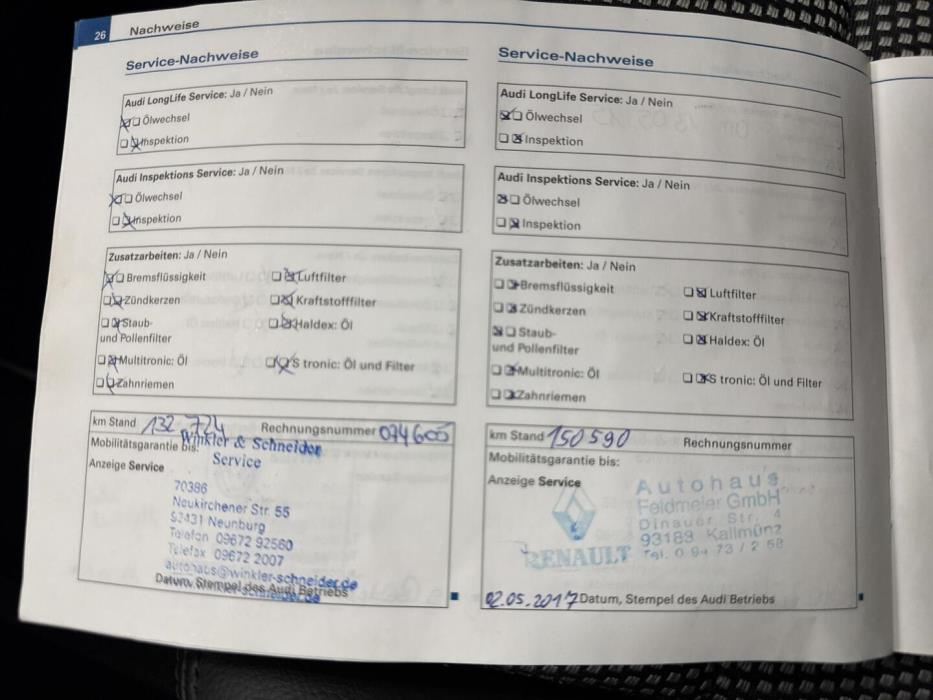 26 Nachweise
Service-Nachweise
Audi LongLife Service: Ja / Nein
Ölwechsel
Inspektion
Audi Inspektions Service: Ja / Nein
Ölwechsel
Inspektion
Zusatzarbeiten: Ja / Nein
Bremsflüssigkeit Luftfilter
Zündkerzen Kraftstofffilter
Staub- Haldex: Öl
und Pollenfilter
Multitronic: Öl S tronic: Öl und Filter
Zahnriemen
km Stand 132 724 Rechnungsnummer 074600
Mobilitätsgarantie bis:
Winkler & Schneider
Anzeige Service
Service
70386
Neukirchener Str. 55
92431 Neunburg
Telefon 09672 92560
Telefax 09672 2007
autohaus@winkler-schneider.de
www.winkler-schneider.de
Datum, Stempel des Audi Betriebs
Service-Nachweise
Audi LongLife Service: Ja / Nein
Ölwechsel
Inspektion
Audi Inspektions Service: Ja / Nein
Ölwechsel
Inspektion
Zusatzarbeiten: Ja / Nein
Bremsflüssigkeit Luftfilter
Zündkerzen Kraftstofffilter
Staub- Haldex: Öl
und Pollenfilter
Multitronic: Öl S tronic: Öl und Filter
Zahnriemen
km Stand 150 590 Rechnungsnummer
Mobilitätsgarantie bis:
Anzeige Service
Autohaus
Feldmeier GmbH
Dinauer Str. 4
93183 Kallmünz
Tel. 0 94 73 / 2 68
RENAULT
02.05.2017 Datum, Stempel des Audi Betriebs